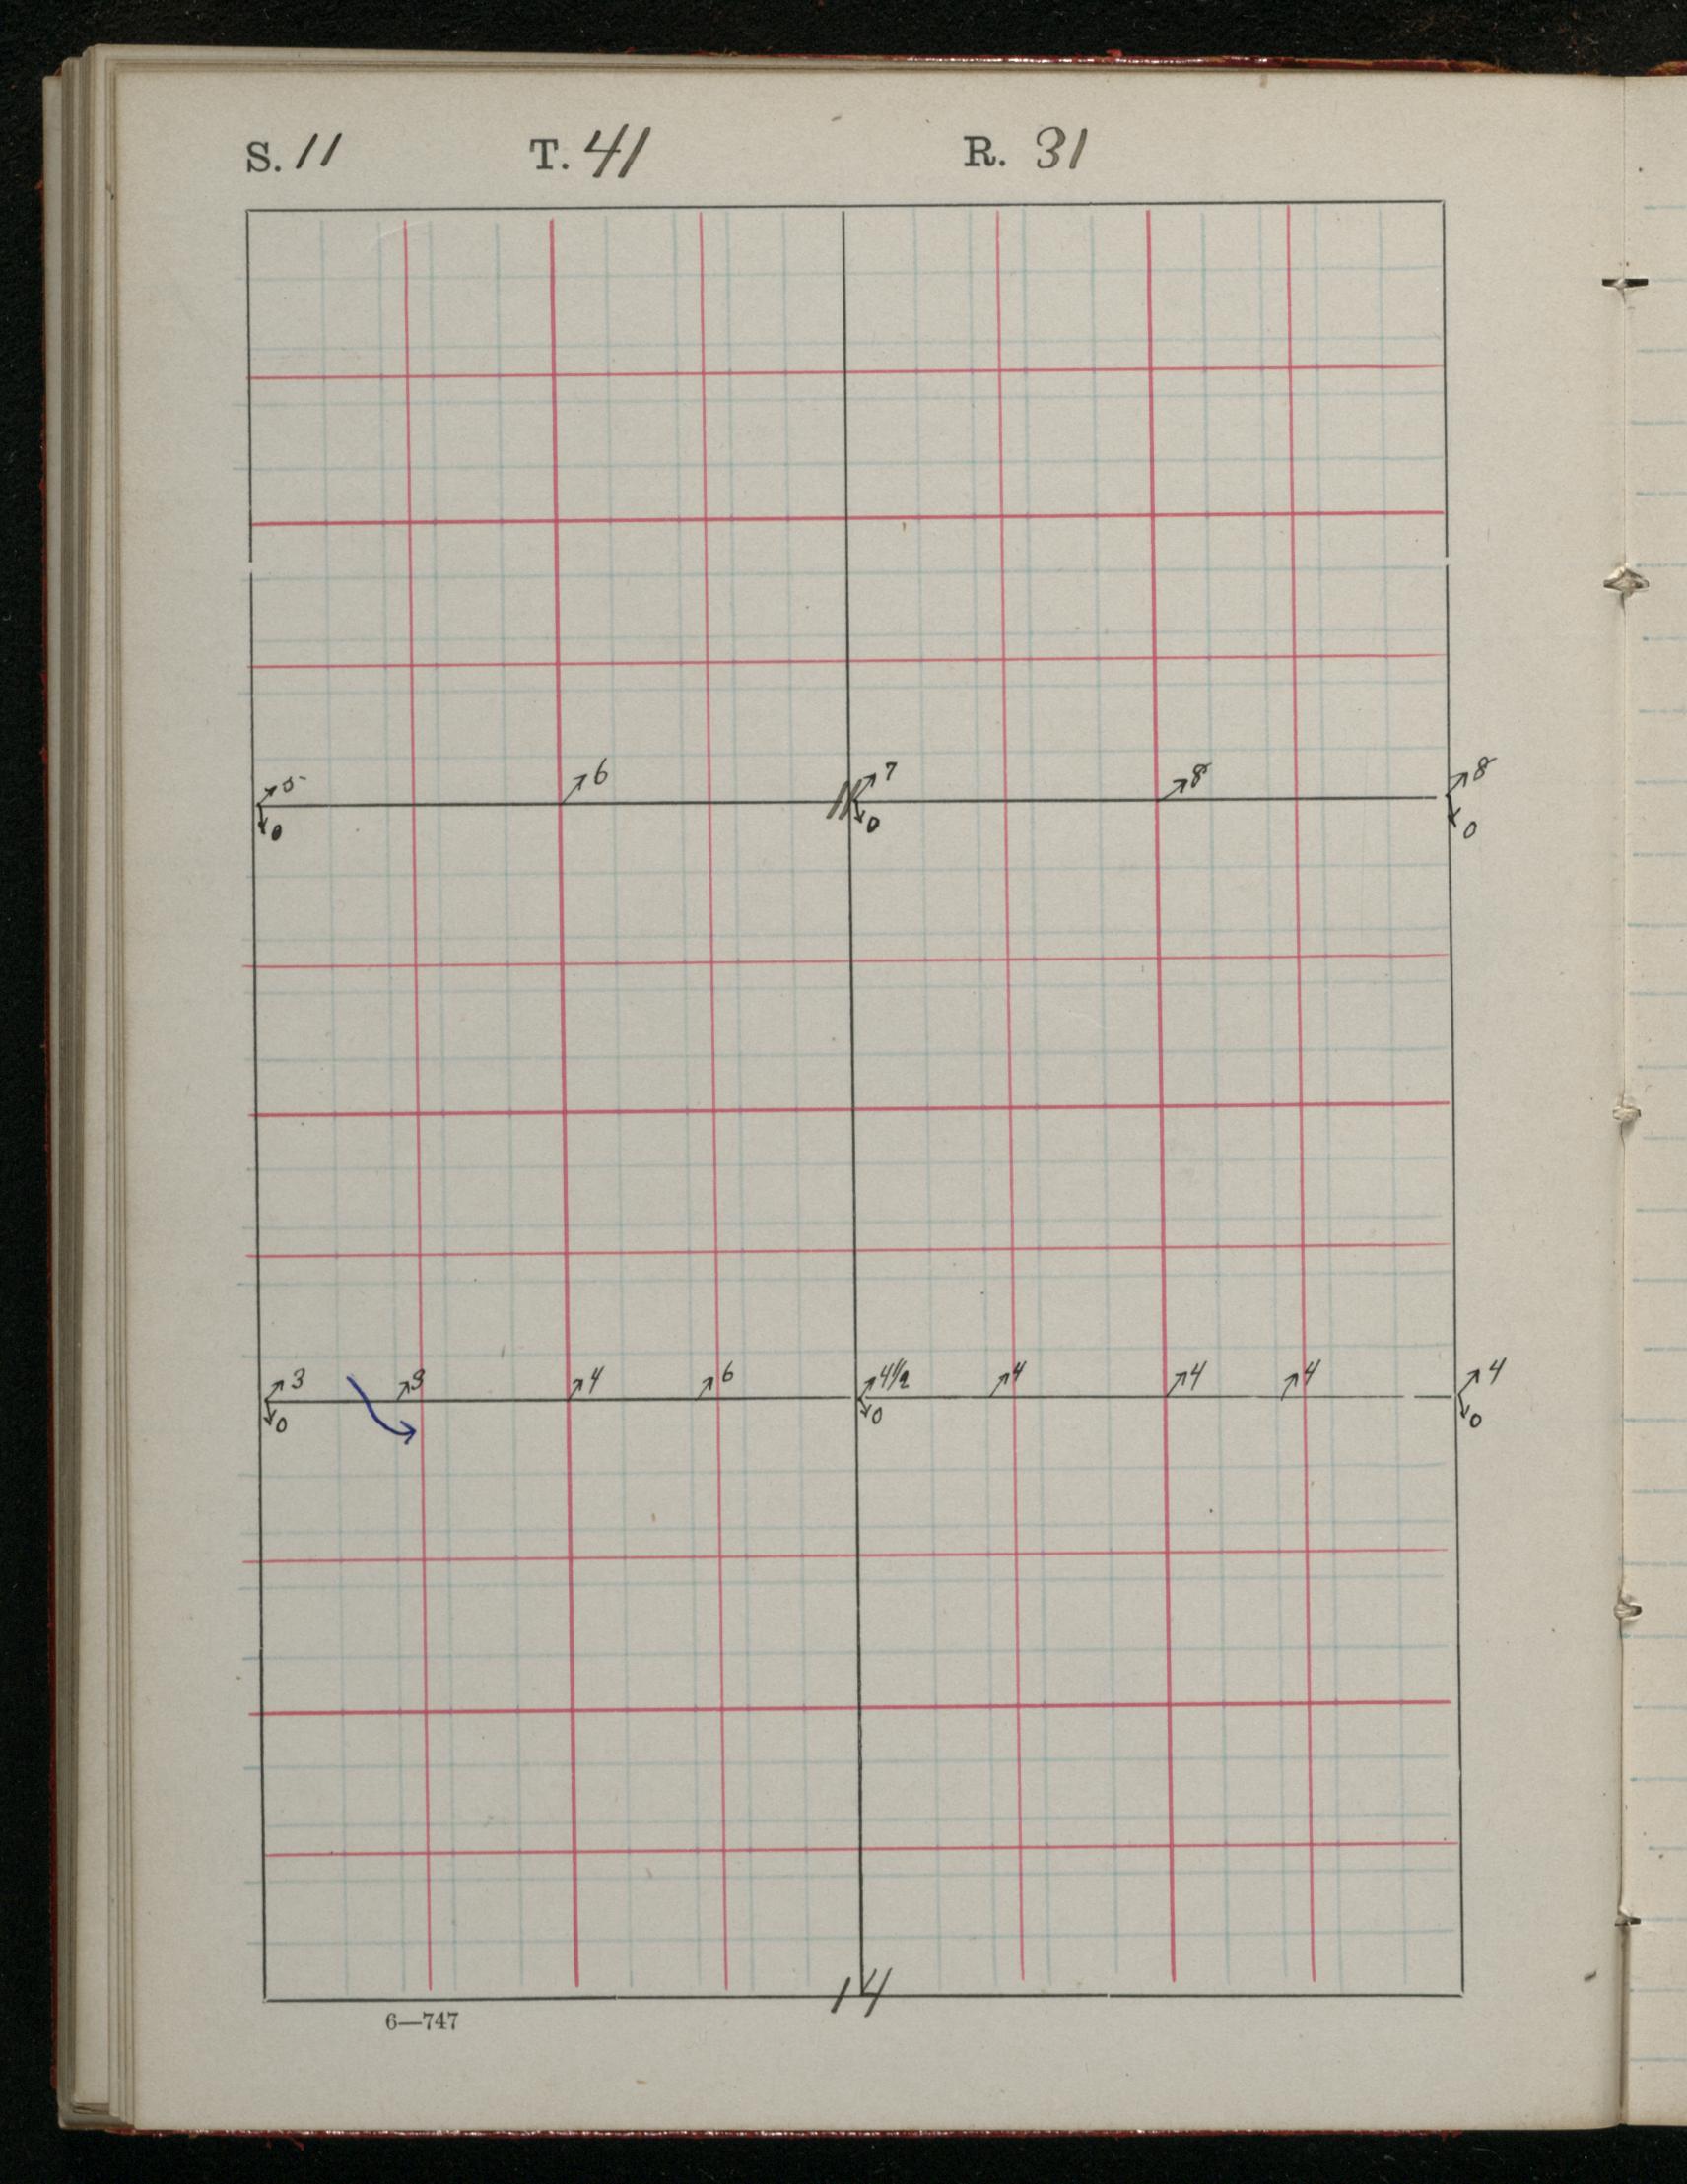 S. 11 T. 41 R. 31
5 6 7 8 8
11
0 0 0
3 3 4 6 4½ 4 4 4 4
0 0 0
14
6—747